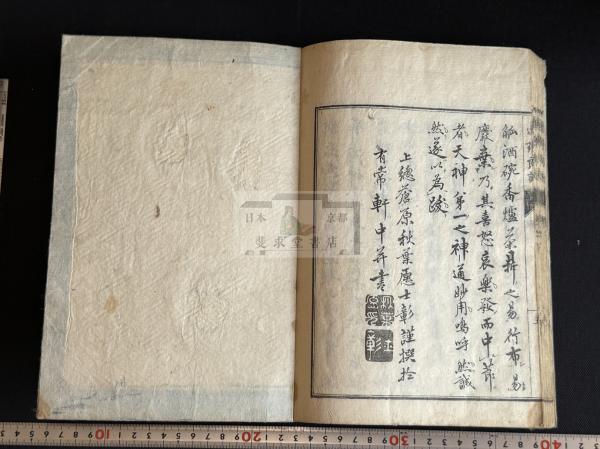 觚酒碗香爐茶鼎之易行布易
廢棄乃其喜怒哀樂發而中節
者天神第一之神通妙用嗚呼然誠
然遂以為跋
上總蒼原秋葉愿士彰謹撰於
有常軒中并書
日本 京都
斐求堂書店
10 20 30 40